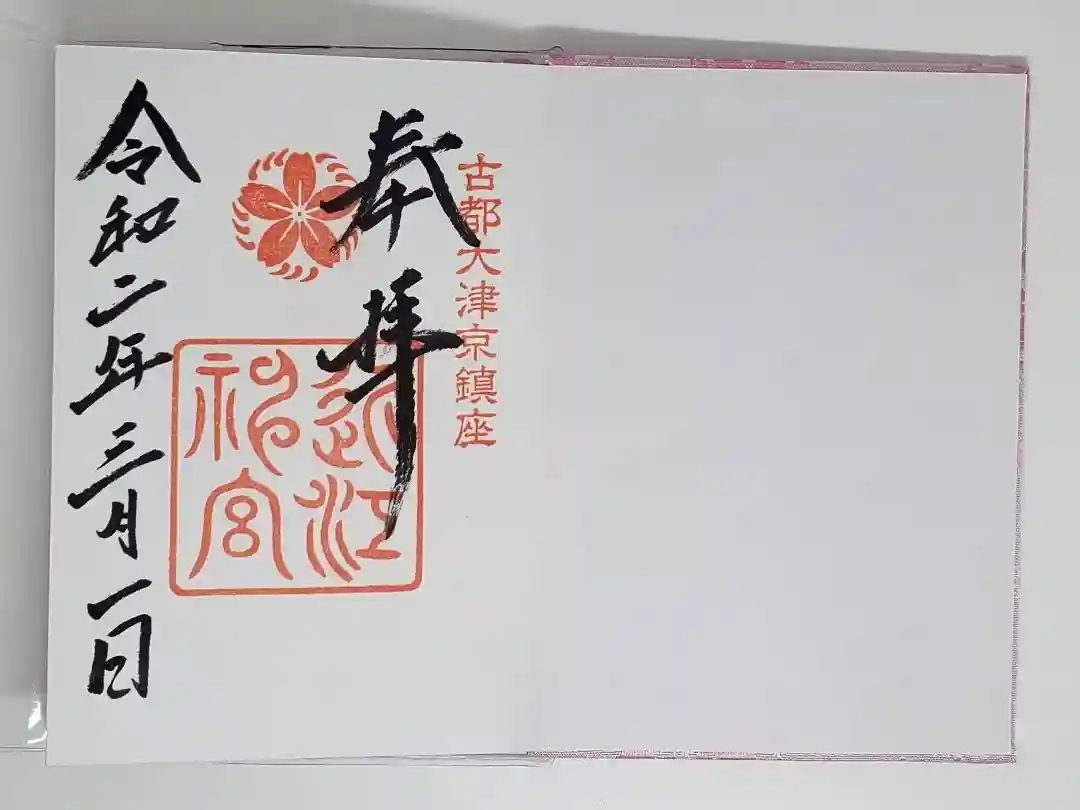 古都大津京鎮座
奉拝
近江
神宮
令和二年三月一日